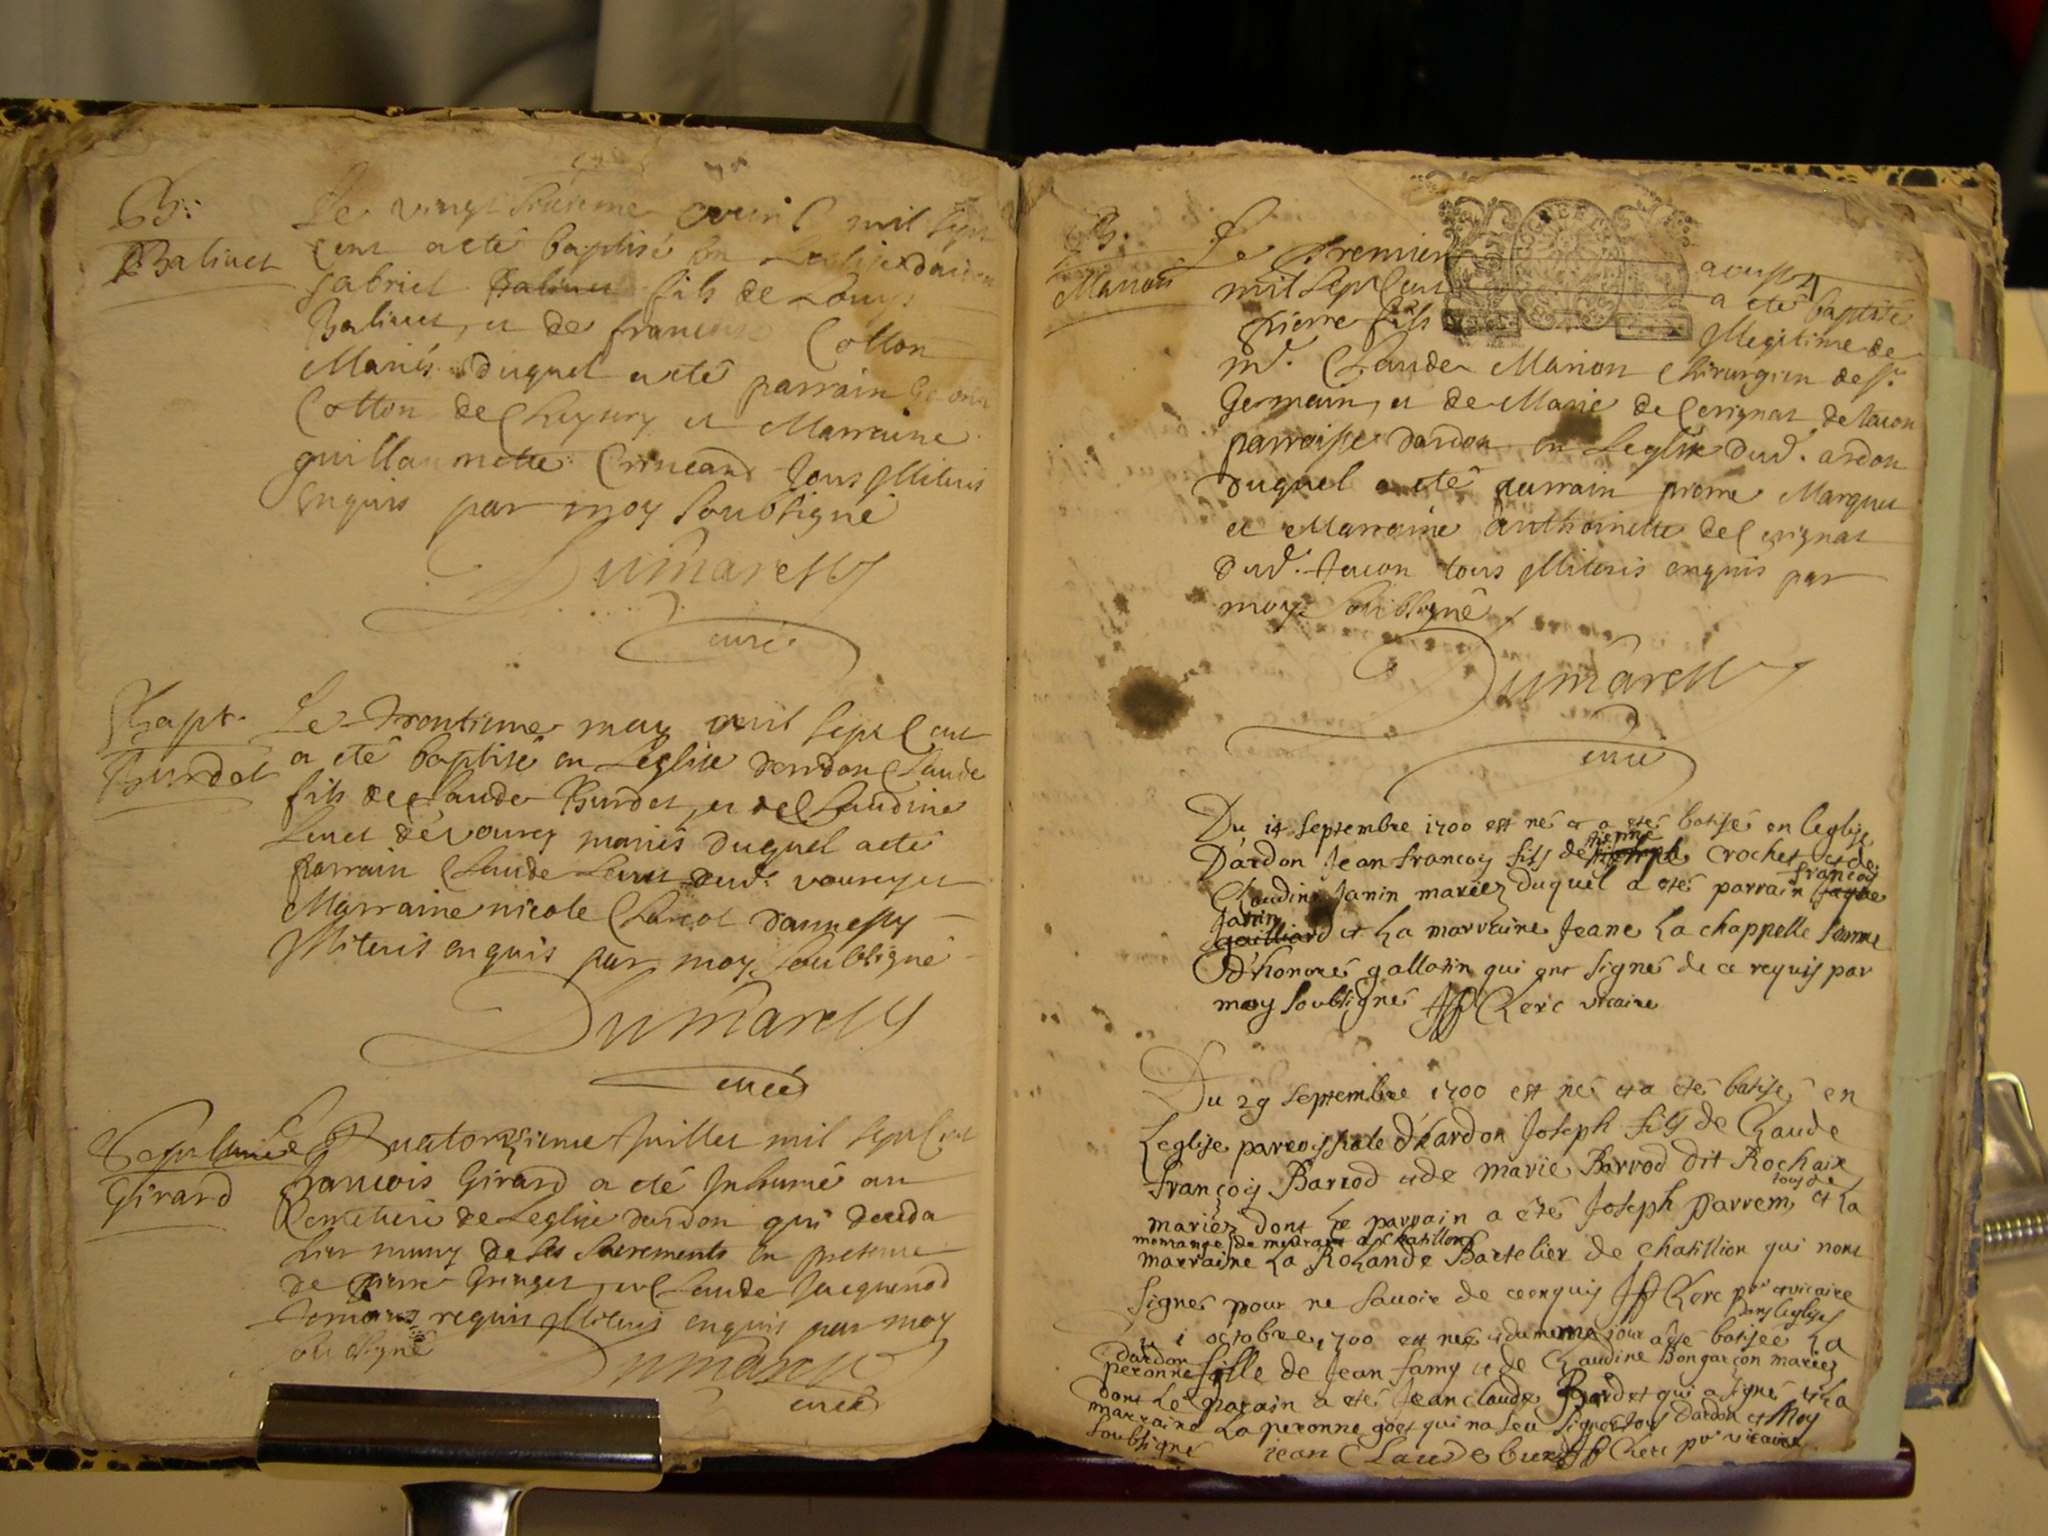 B.
Balivet
Le vingt sixieme avril mil sept
cent a eté baptisé en Leglise
Gabriel Balivet fils de Louys
Balivet, et de francoise Cotton
Mariés duquel a eté parrain
Cotton de et Marraine
guillaumette tous Illiteris
enquis par moy soubsigné
Dumarest
curé
Bapt.
Burdet
Le Trentieme may mil sept Cent
a eté baptisé en Leglise dardon Claude
fils de Claude Burdet, et de Claudine
mariés duquel a eté
parrain Claude dud. et
Marraine nicole
Illiteris enquis par moy soubsigné
Dumarest
curé
Sepulture
Girard
Le Quatorzieme Juillet mil sept Cent
francois Girard a eté Inhumé au
Cemetiere de Leglise dardon qui deceda
hier muny de ses sacrements en presence
de pierre et Claude Jacquenod
Temoins requis Illiteris enquis par moy
soubsigné Dumarest
curé
B.
Marion
Le premier aoust
mil sept cent a eté baptisé
pierre fils Illegitime de
m.r Claude Marion Chirurgien de st
Germain, et de Marie de Cerignat de Tacon
parroisse dardon en Leglise dud. ardon
duquel a eté parrain pierre Marquet
et Marraine anthoinette de Cerignat
dud. Tacon tous Illiteris enquis par
moy soubsigné
Dumarest
curé
Du 14 septembre 1700 est né et a eté batisé en leglise
pierre
D'ardon Jean francoy fils de Joseph Crochet et de
francoy
Claudine Janin mariez duquel a eté parrain Jaque
Janin
gailliard et La marraine Jeane La chappelle femme
d'honoré gallatin qui ont signé de ce requis par
moy soubsigné Clerc vicaire
Du 29 septembre 1700 est né et a eté batisé en
Leglise paroissiale d'Hardon Joseph fils de Claude
françois Barrod et de marie Barrod dit Rochaix
tous de
mariez dont Le parrain a eté Joseph parrem et La
marraine La Rolande Bartelier de Chatillion qui nont
signé pour ne savoir de ce enquis Clerc p. vicaire
dans leglise
Du 1 octobre 1700 est née et du meme jour a esté batisée La
dardon
peronne fille de Jean famy et de Claudine Bongarçon mariez
dont Le parain a eté Jean claude Burdet qui a signé et La
marraine La peronne goet qui na seu signer tous dardon et Moy
soubsigné jean Claude burdet Clerc p. vicaire